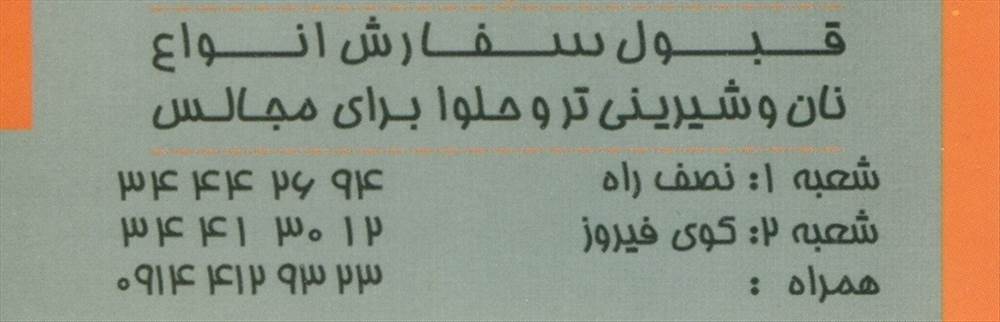 قبول سفارش انواع
نان و شیرینی تر و حلوا برای مجالس
شعبه ۱: نصف راه ۳۴ ۴۴ ۲۶ ۹۴
شعبه ۲: کوی فیروز ۳۴ ۴۱ ۳۰ ۱۲
همراه : ۰۹۱۴ ۴۱۲ ۹۳ ۲۳